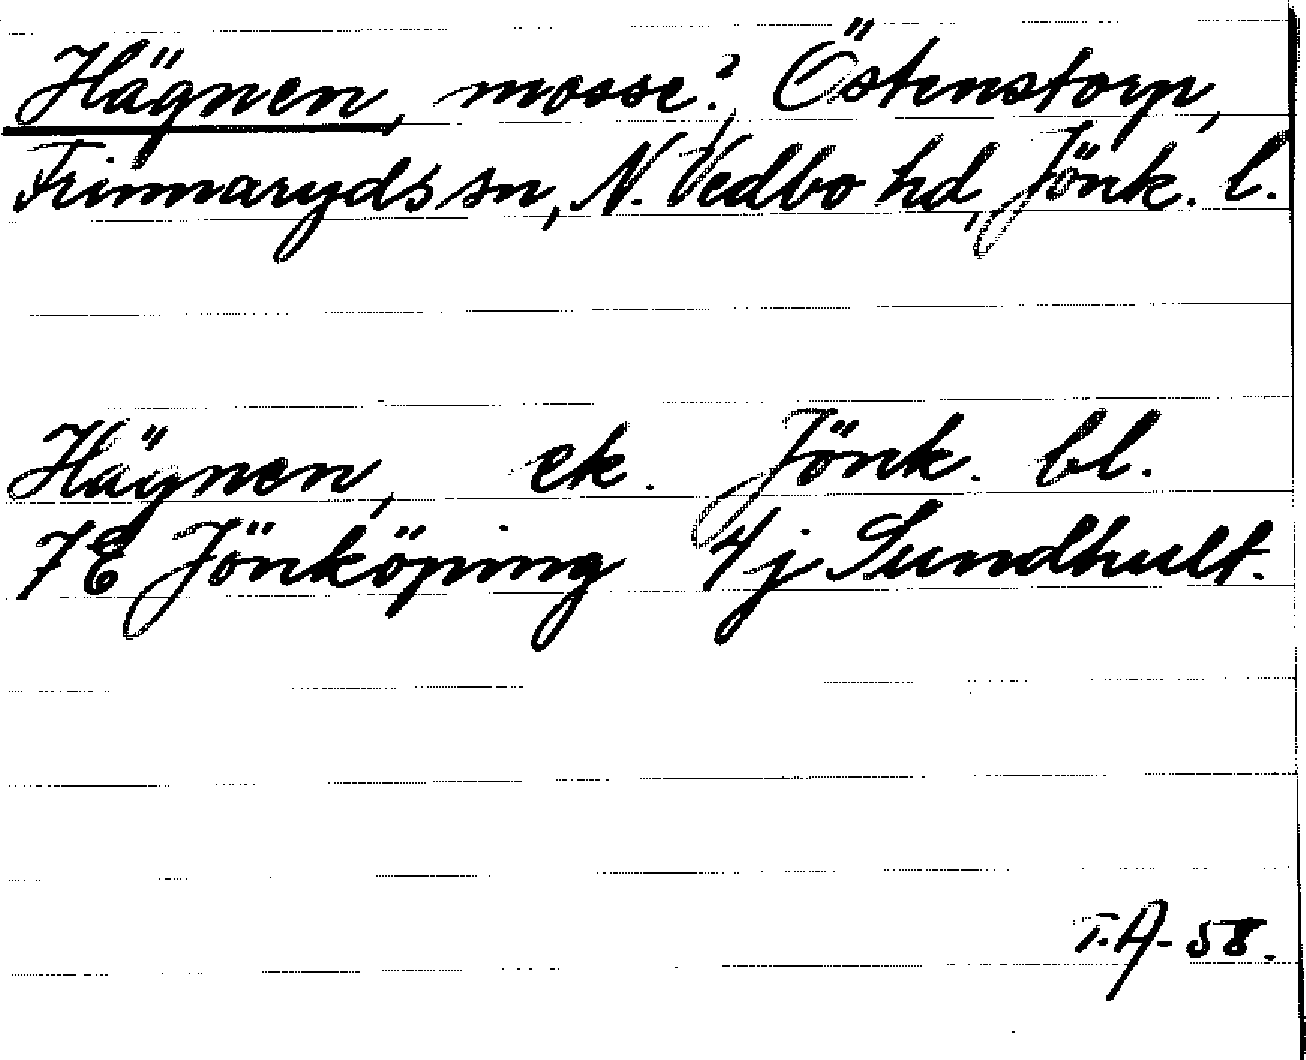 Hägnen, mosse?, Östenstorp,
Finnaryds sn, N. Vedbo hd, Jönk. l.
Hägnen, ek. Jönk. bl.
7E Jönköping 4j Sundhult.
T.A-58.